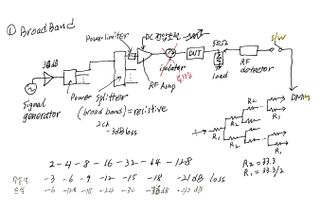 ① BroadBand
Power limiter
DC
isolator
DUT
50Ω
load
RF
detector
s/w
DMM
RF Amp
Signal
generator
Power splitter
(broad band) = resistive
2ch
-3dB loss
R1
R2
R1
R2
R1
R2 = 33.3
R1 = 33.3/2
2 - 4 - 8 - 16 - 32 - 64 - 128
-3 -6 -9 -12 -15 -18 -21 dB loss
-6 -12 -18 -24 -30 -36 dB -42 dB